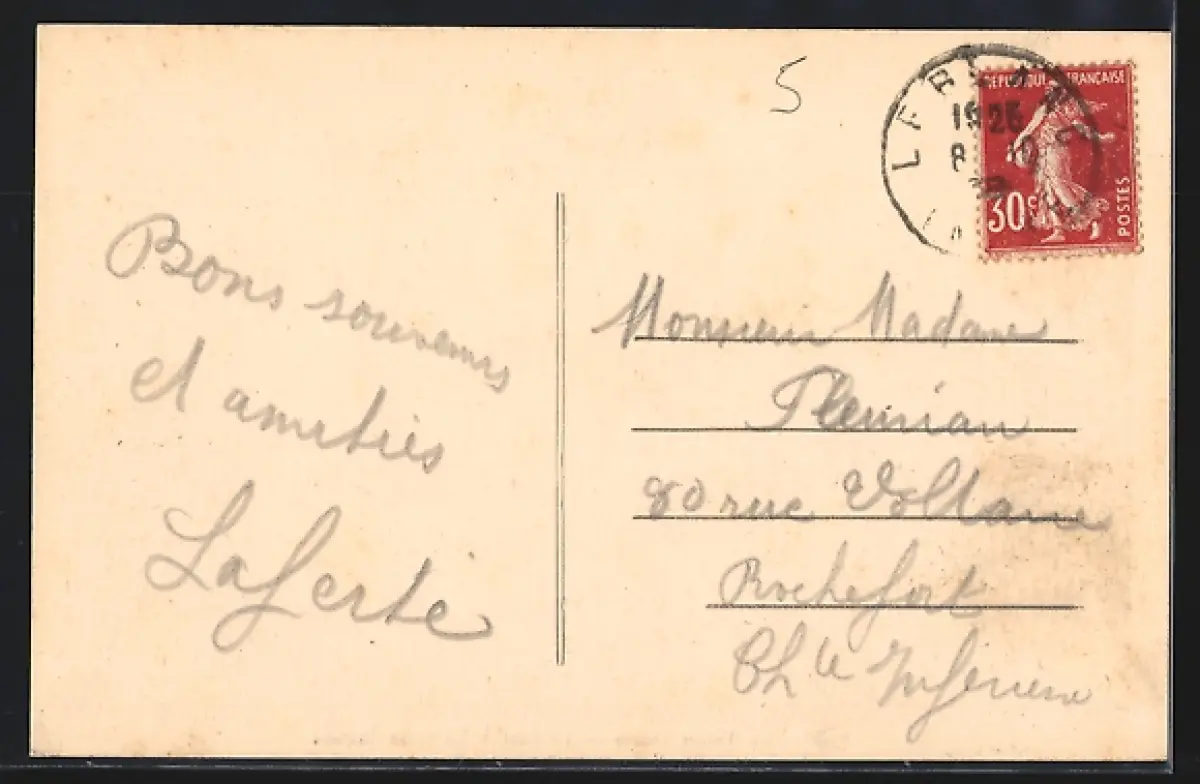 5
1926
8
RÉPUBLIQUE FRANÇAISE
30c
POSTES
Bons souvenirs
et amitiés
Laferté
Monsieur Madame
80 rue Voltaire
Rochefort
Ch te Inférieure